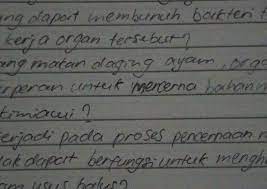 ng dapat membunuh bakteri
kerja organ tersebut?
ang makan daging ayam, orga
rperan untuk mencerna bahan m
kimiawi?
erjadi pada proses pencernaan
dak dapat berfungsi untuk mengh
am usus halus?